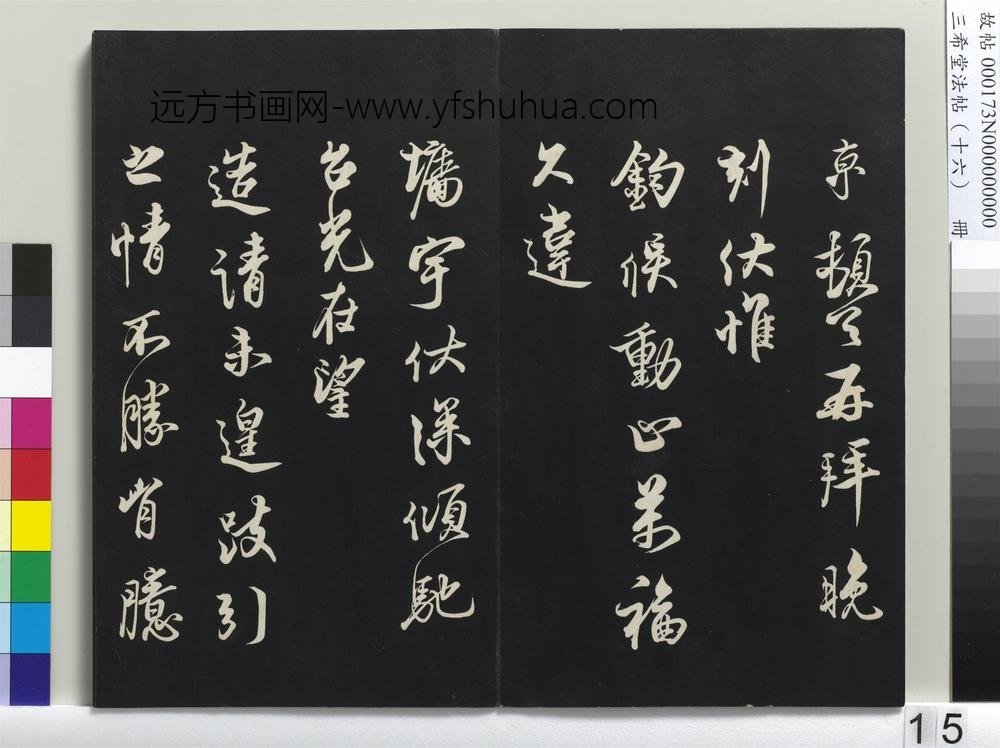 远方书画网-www.yfshuhua.com
故帖 000173N000000000
三希堂法帖(十六) 册
京顿首再拜晚
刻伏惟
鈞候動止萬福
久違
墉宇伏深傾馳
台光在望
造請未遑跂引
之情不勝胷臆
15